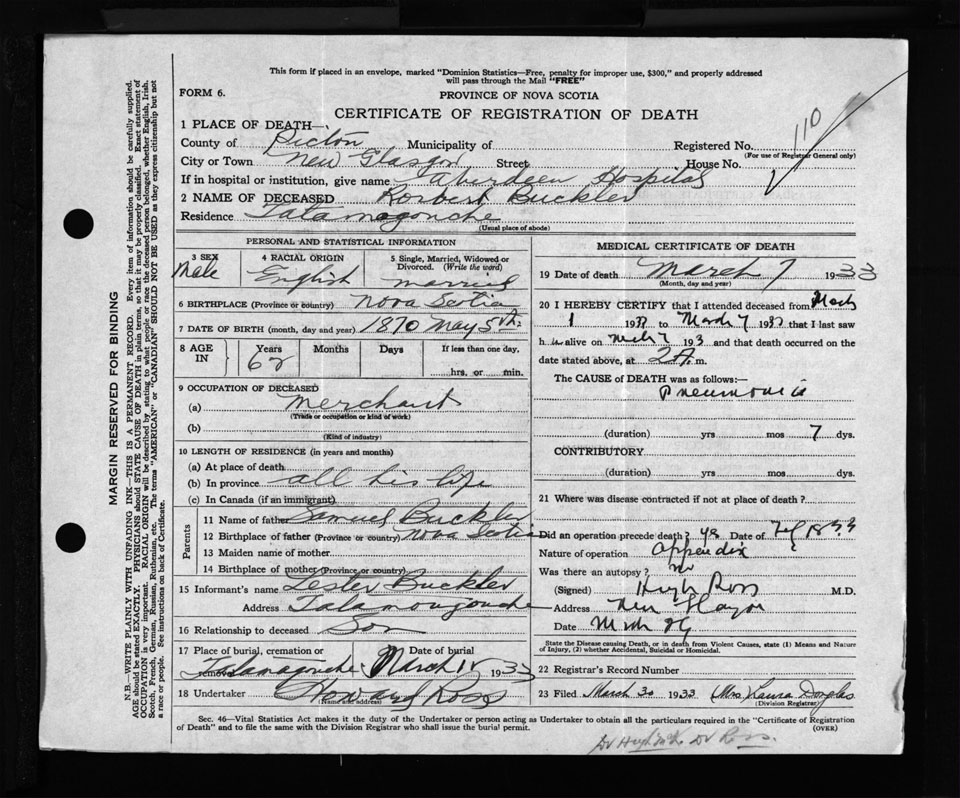 This form if placed in an envelope, marked "Dominion Statistics—Free, penalty for improper use, $300," and properly addressed
will pass through the Mail "FREE"
FORM 6.
PROVINCE OF NOVA SCOTIA
CERTIFICATE OF REGISTRATION OF DEATH
110
1 PLACE OF DEATH—
County of Pictou Municipality of Registered No.
(For use of Registrar General only)
City or Town New Glasgow Street House No.
If in hospital or institution, give name Aberdeen Hospital
2 NAME OF DECEASED Robert Buckler
Residence Tatamagouche
(Usual place of abode)
PERSONAL AND STATISTICAL INFORMATION
3 SEX 4 RACIAL ORIGIN 5 Single, Married, Widowed or
Divorced. (Write the word)
Male English married
6 BIRTHPLACE (Province or country) Nova Scotia
7 DATE OF BIRTH (month, day and year) 1870 May 5th
8 AGE IN Years Months Days If less than one day,
62 hrs. or min.
9 OCCUPATION OF DECEASED
(a) Merchant
(Trade or occupation or kind of work)
(b)
(Kind of industry)
10 LENGTH OF RESIDENCE (in years and months)
(a) At place of death
(b) In province all his life
(c) In Canada (if an immigrant)
Parents
11 Name of father Samuel Buckler
12 Birthplace of father (Province or country) Nova Scotia
13 Maiden name of mother
14 Birthplace of mother (Province or country)
15 Informant's name Lester Buckler
Address Tatamagouche
16 Relationship to deceased Son
17 Place of burial, cremation or removal Date of burial
Tatamagouche March 1933
18 Undertaker Howard Ross
(Name and address)
MEDICAL CERTIFICATE OF DEATH
19 Date of death March 7 1933
(Month, day and year)
20 I HEREBY CERTIFY that I attended deceased from March
1 193 to March 7 193 that I last saw
h im alive on March 7 193 and that death occurred on the
date stated above, at 2 A. m.
The CAUSE OF DEATH was as follows:—
Pneumonia
(duration) yrs mos 7 dys.
CONTRIBUTORY
(duration) yrs mos dys.
21 Where was disease contracted if not at place of death?
Did an operation precede death? yes Date of
Nature of operation appendix
Was there an autopsy? no
(Signed) Hugh Ross M.D.
Address New Glasgow
Date March
State the Disease causing Death, or in death from Violent Causes, state (1) Means and Nature
of Injury, (2) whether Accidental, Suicidal or Homicidal.
22 Registrar's Record Number
23 Filed March 20 1933 Mrs Laura Douglas
(Division Registrar)
Sec. 46—Vital Statistics Act makes it the duty of the Undertaker or person acting as Undertaker to obtain all the particulars required in the "Certificate of Registration
of Death" and to file the same with the Division Registrar who shall issue the burial permit.
(OVER)
Dr Hugh Dr Ross.
MARGIN RESERVED FOR BINDING
N.B.—WRITE PLAINLY WITH UNFADING INK—THIS IS A PERMANENT RECORD. Every item of information should be carefully supplied.
AGE should be stated EXACTLY. PHYSICIANS should STATE CAUSE OF DEATH in plain terms, so that it may be properly classified. Exact statement of
OCCUPATION is very important. RACIAL ORIGIN will be described by stating to what people or race the deceased person belonged, whether English, Irish,
Scotch, French, German, Russian, Ruthenian, etc. The terms "AMERICAN" or "CANADIAN" SHOULD NOT BE USED as they express citizenship but not
a race or people. See instructions on back of Certificate.